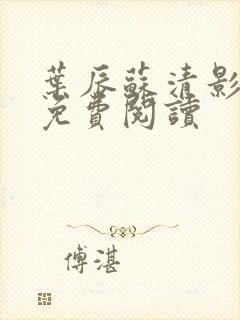 葉辰蘇清影
免費閱讀
傅湛